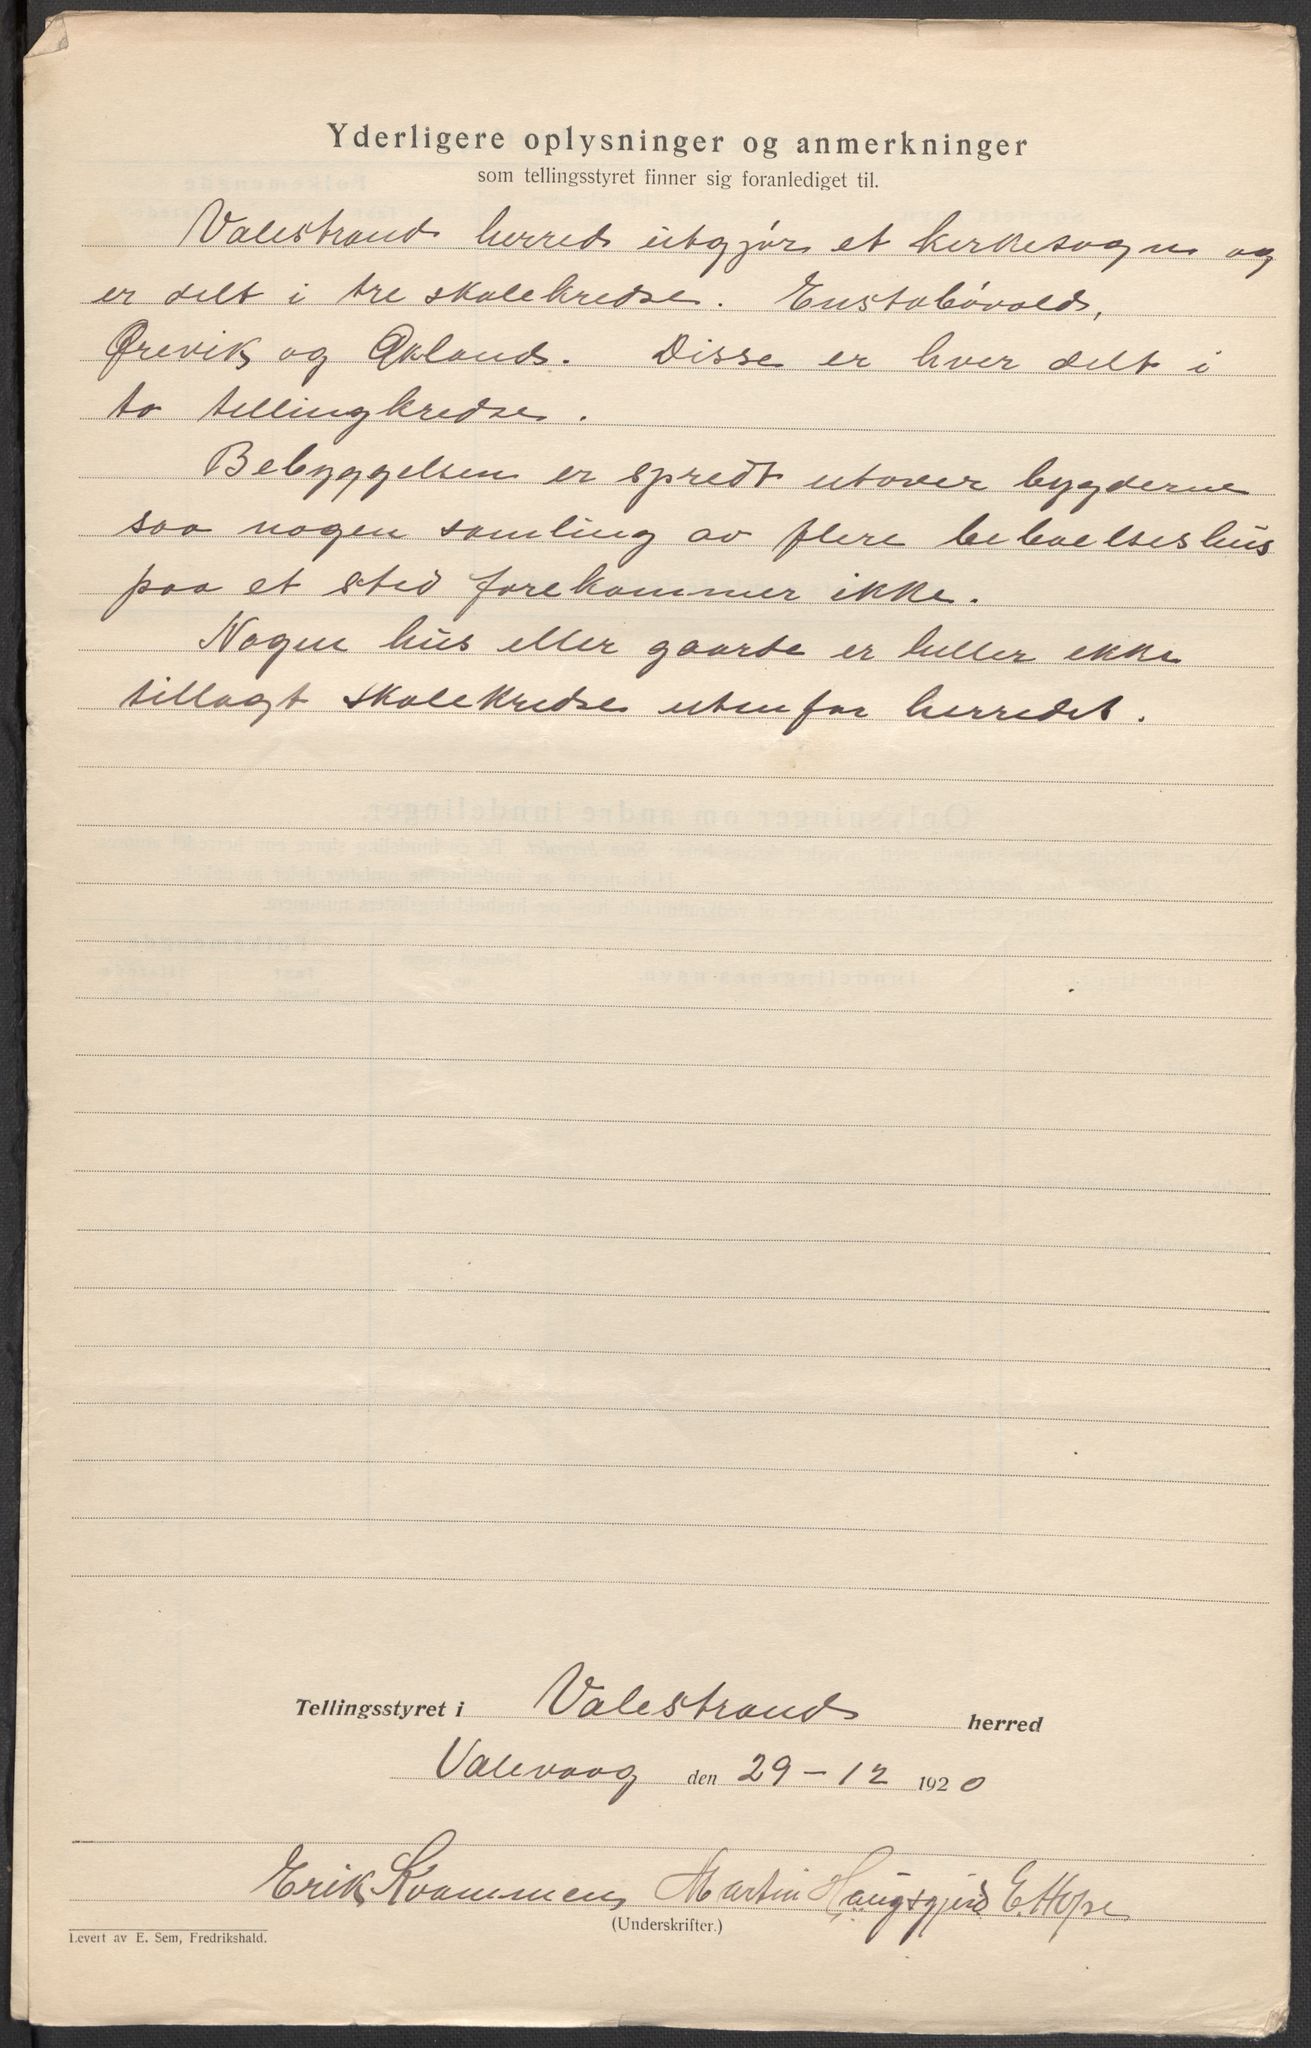 Yderligere oplysninger og anmerkninger
som tellingsstyret finner sig foranlediget til.
Valestrand herred utgjør et kirkesogn og
er delt i tre skolekredse. Enstabøvold,
Ørevik og Økland. Disse er hver delt i
to tellingkredse.
Bebyggelsen er spredt utover bygderne
saa nogen samling av flere beboelseshus
paa et sted forekommer ikke.
Nogen hus eller gaarde er heller ikke
tillagt skolekredse utenfor herredet.
Tellingsstyret i Valestrand herred
Valevaag den 29 - 12 1920
Erik Kvammen Martin Haugsgjerd E. Hope
(Underskrifter.)
Levert av E. Sem, Fredrikshald.